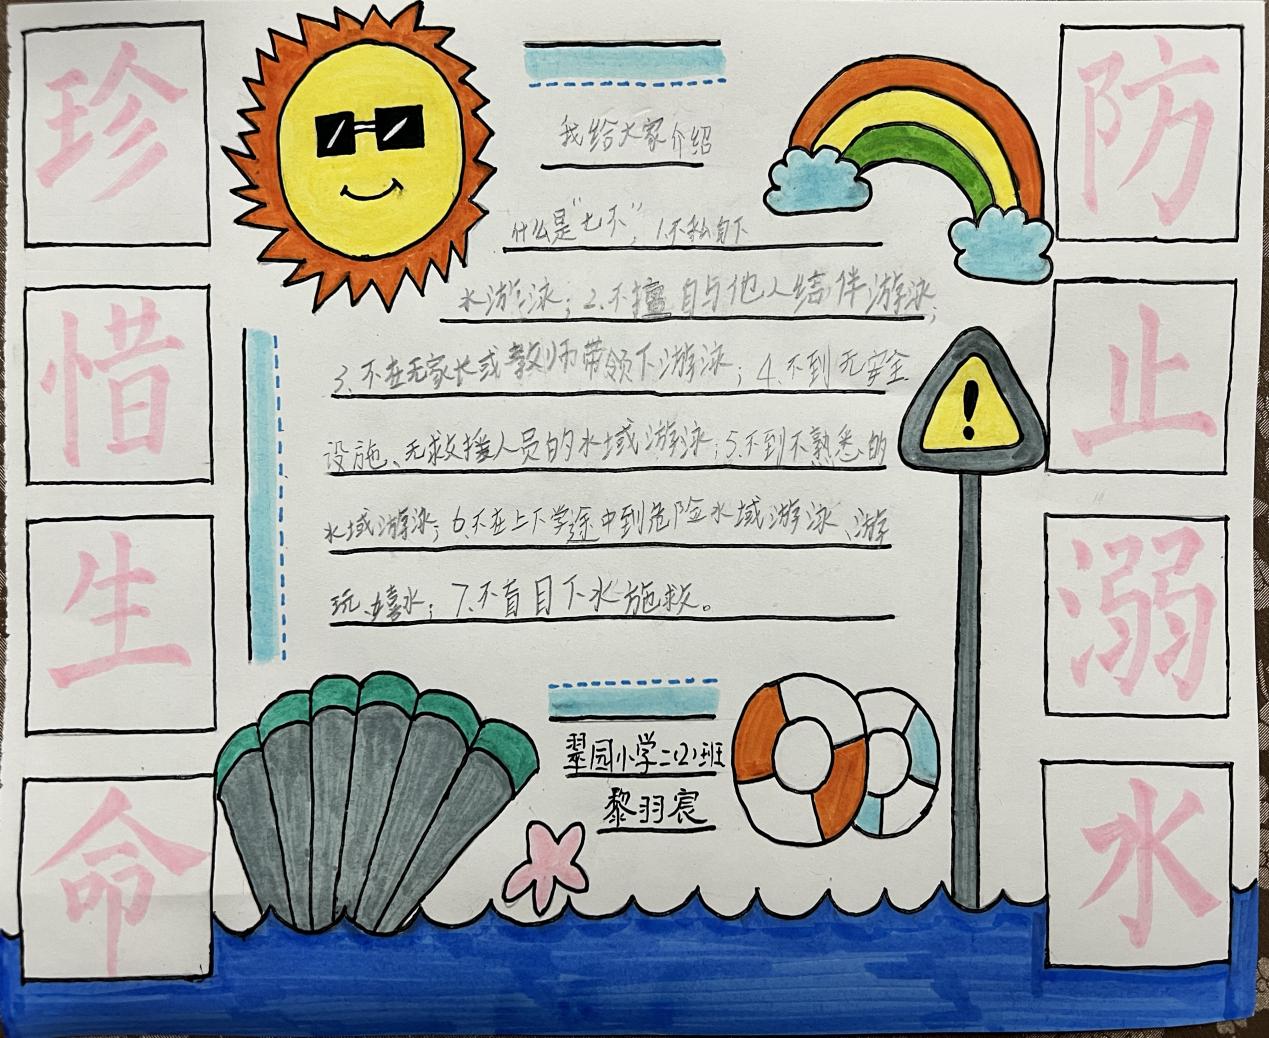 珍惜生命
防止溺水
我给大家介绍
什么是“七不”，1.不私自下
水游泳；2.不擅自与他人结伴游泳；
3.不在无家长或教师带领下游泳；4.不到无安全
设施、无救援人员的水域游泳；5.不到不熟悉的
水域游泳；6.不在上下学途中到危险水域游泳、游
玩、嬉水；7.不盲目下水施救。
翠园小学二（2）班
黎羽宸